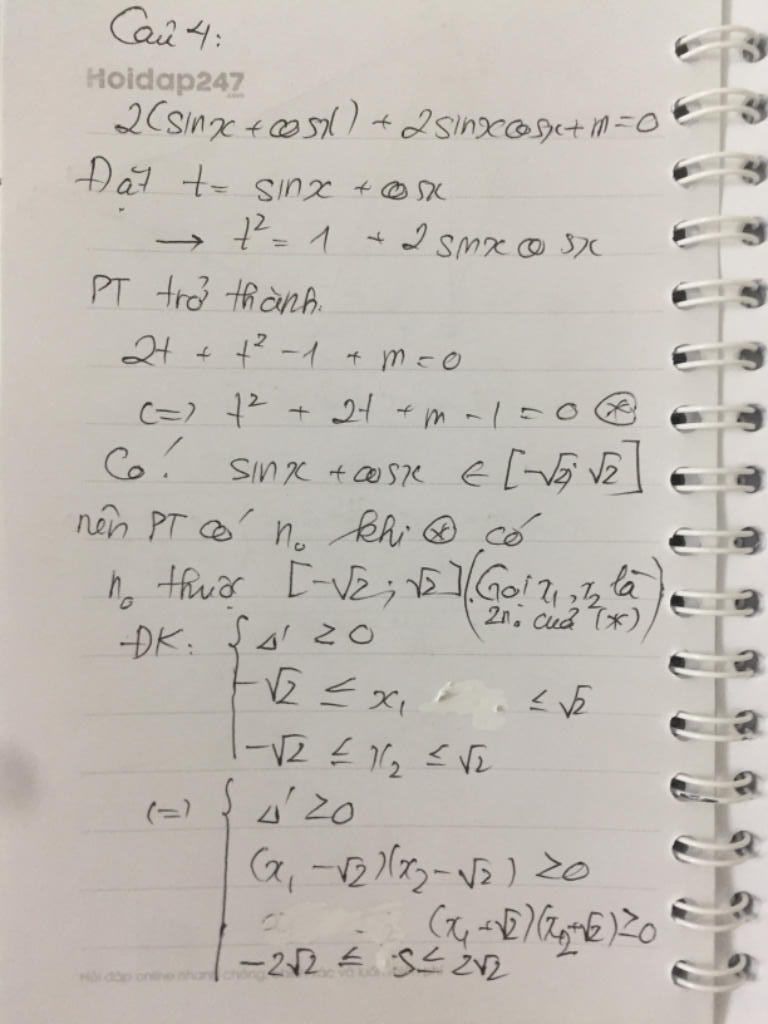 Câu 4:
Hoidap247
.com
2(sinx + cosx) + 2sinxcosx + m = 0
Đặt t = sinx + cosx
→ t² = 1 + 2sinxcosx
PT trở thành.
2t + t² - 1 + m = 0
(=) t² + 2t + m - 1 = 0 (*)
Có: sinx + cosx ∈ [-√2; √2]
nên PT có n₀ khi (*) có
n₀ thuộc [-√2; √2] (Gọi x₁, x₂ là
2n₀ của (*))
ĐK: { Δ' ≥ 0
-√2 ≤ x₁ ≤ √2
-√2 ≤ x₂ ≤ √2
(=) { Δ' ≥ 0
(x₁ - √2)(x₂ - √2) ≥ 0
(x₁ + √2)(x₂ + √2) ≥ 0
-2√2 ≤ S ≤ 2√2
Hỏi đáp online nhanh chóng, chính xác và luôn miễn phí